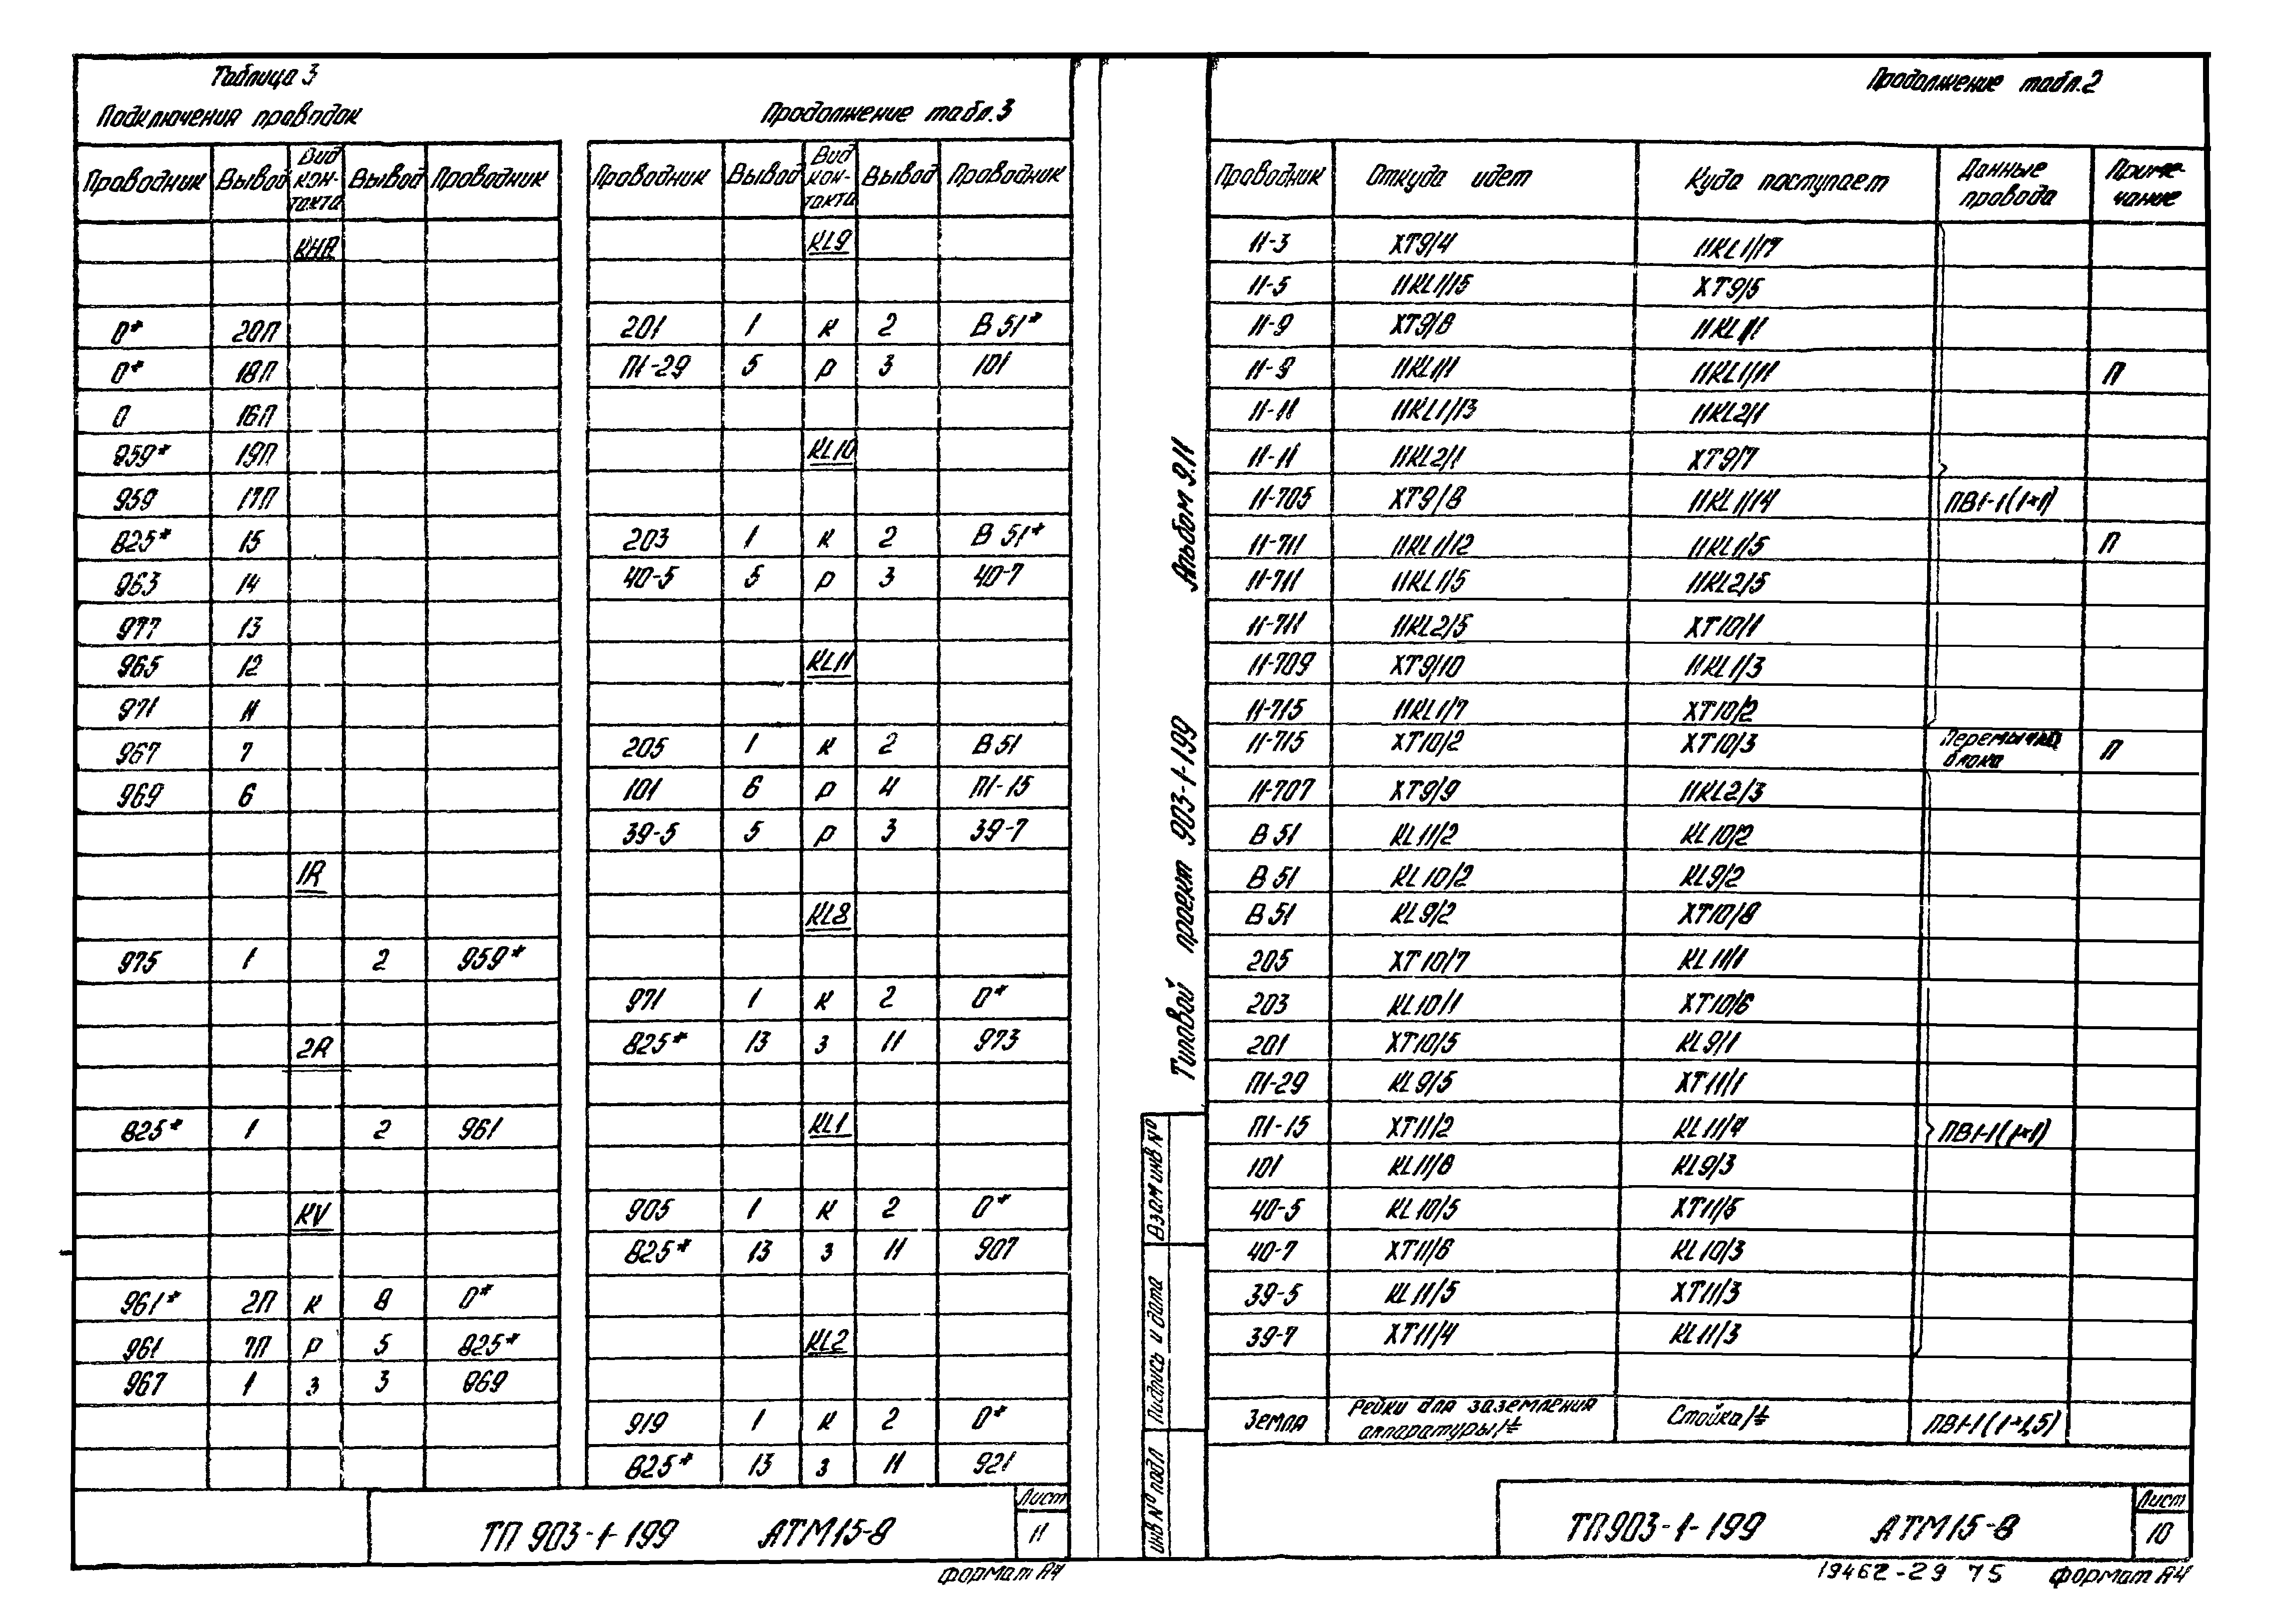 Таблица 3
Подключения проводок
Продолжение табл.3
Проводник Вывод Вид кон-такта Вывод Проводник
КНП
0* 20П
0* 18П
0 16П
959* 19П
959 17П
825* 15
963 14
977 13
965 12
971 11
967 7
969 6
1R
975 1 2 959*
2R
825* 1 2 961
KV
961* 2П к 8 0*
961 7П р 5 825*
967 1 з 3 969
Проводник Вывод Вид кон-такта Вывод Проводник
KL9
201 1 к 2 В51*
П1-29 5 р 3 101
KL10
203 1 к 2 В51*
40-5 5 р 3 40-7
KL11
205 1 к 2 В51
101 6 р 4 П1-15
39-5 5 р 3 39-7
KL8
971 1 к 2 0*
825* 13 з 11 973
KL1
905 1 к 2 0*
825* 13 з 11 907
KL2
919 1 к 2 0*
825* 13 з 11 921
ТП 903-1-199 АТМ15-8
Лист
11
Формат А4
Типовой проект 903-1-199 Альбом 9.11
Взам инв №
Подпись и дата
Инв № подл
Продолжение табл.2
Проводник Откуда идет Куда поступает Данные провода Приме-чание
11-3 XT9/4 11KL1/17
11-5 11KL1/15 XT9/5
11-9 XT9/6 11KL1/1
11-9 11KL1/1 11KL1/11 П
11-11 11KL1/13 11KL2/1
11-11 11KL2/1 XT9/7
11-705 XT9/8 11KL1/14 ПВ1-1(1×1)
11-711 11KL1/12 11KL1/5 П
11-711 11KL1/5 11KL2/5
11-711 11KL2/5 XT10/1
11-709 XT9/10 11KL1/3
11-715 11KL1/7 XT10/2
11-715 XT10/2 XT10/3 Перемычка блока П
11-707 XT9/9 11KL2/3
В51 KL11/2 KL10/2
В51 KL10/2 KL9/2
В51 KL9/2 XT10/8
205 XT10/7 KL11/1
203 KL10/1 XT10/6
201 XT10/5 KL9/1
П1-29 KL9/5 XT11/1
П1-15 XT11/2 KL11/4 ПВ1-1(1×1)
101 KL11/6 KL9/3
40-5 KL10/5 XT11/5
40-7 XT11/6 KL10/3
39-5 KL11/5 XT11/3
39-7 XT11/4 KL11/3
Земля Рейки для заземления аппаратуры/⏚ Стойка/⏚ ПВ1-1(1×1,5)
ТП903-1-199 АТМ15-8
Лист
10
19462-29 75 Формат А4